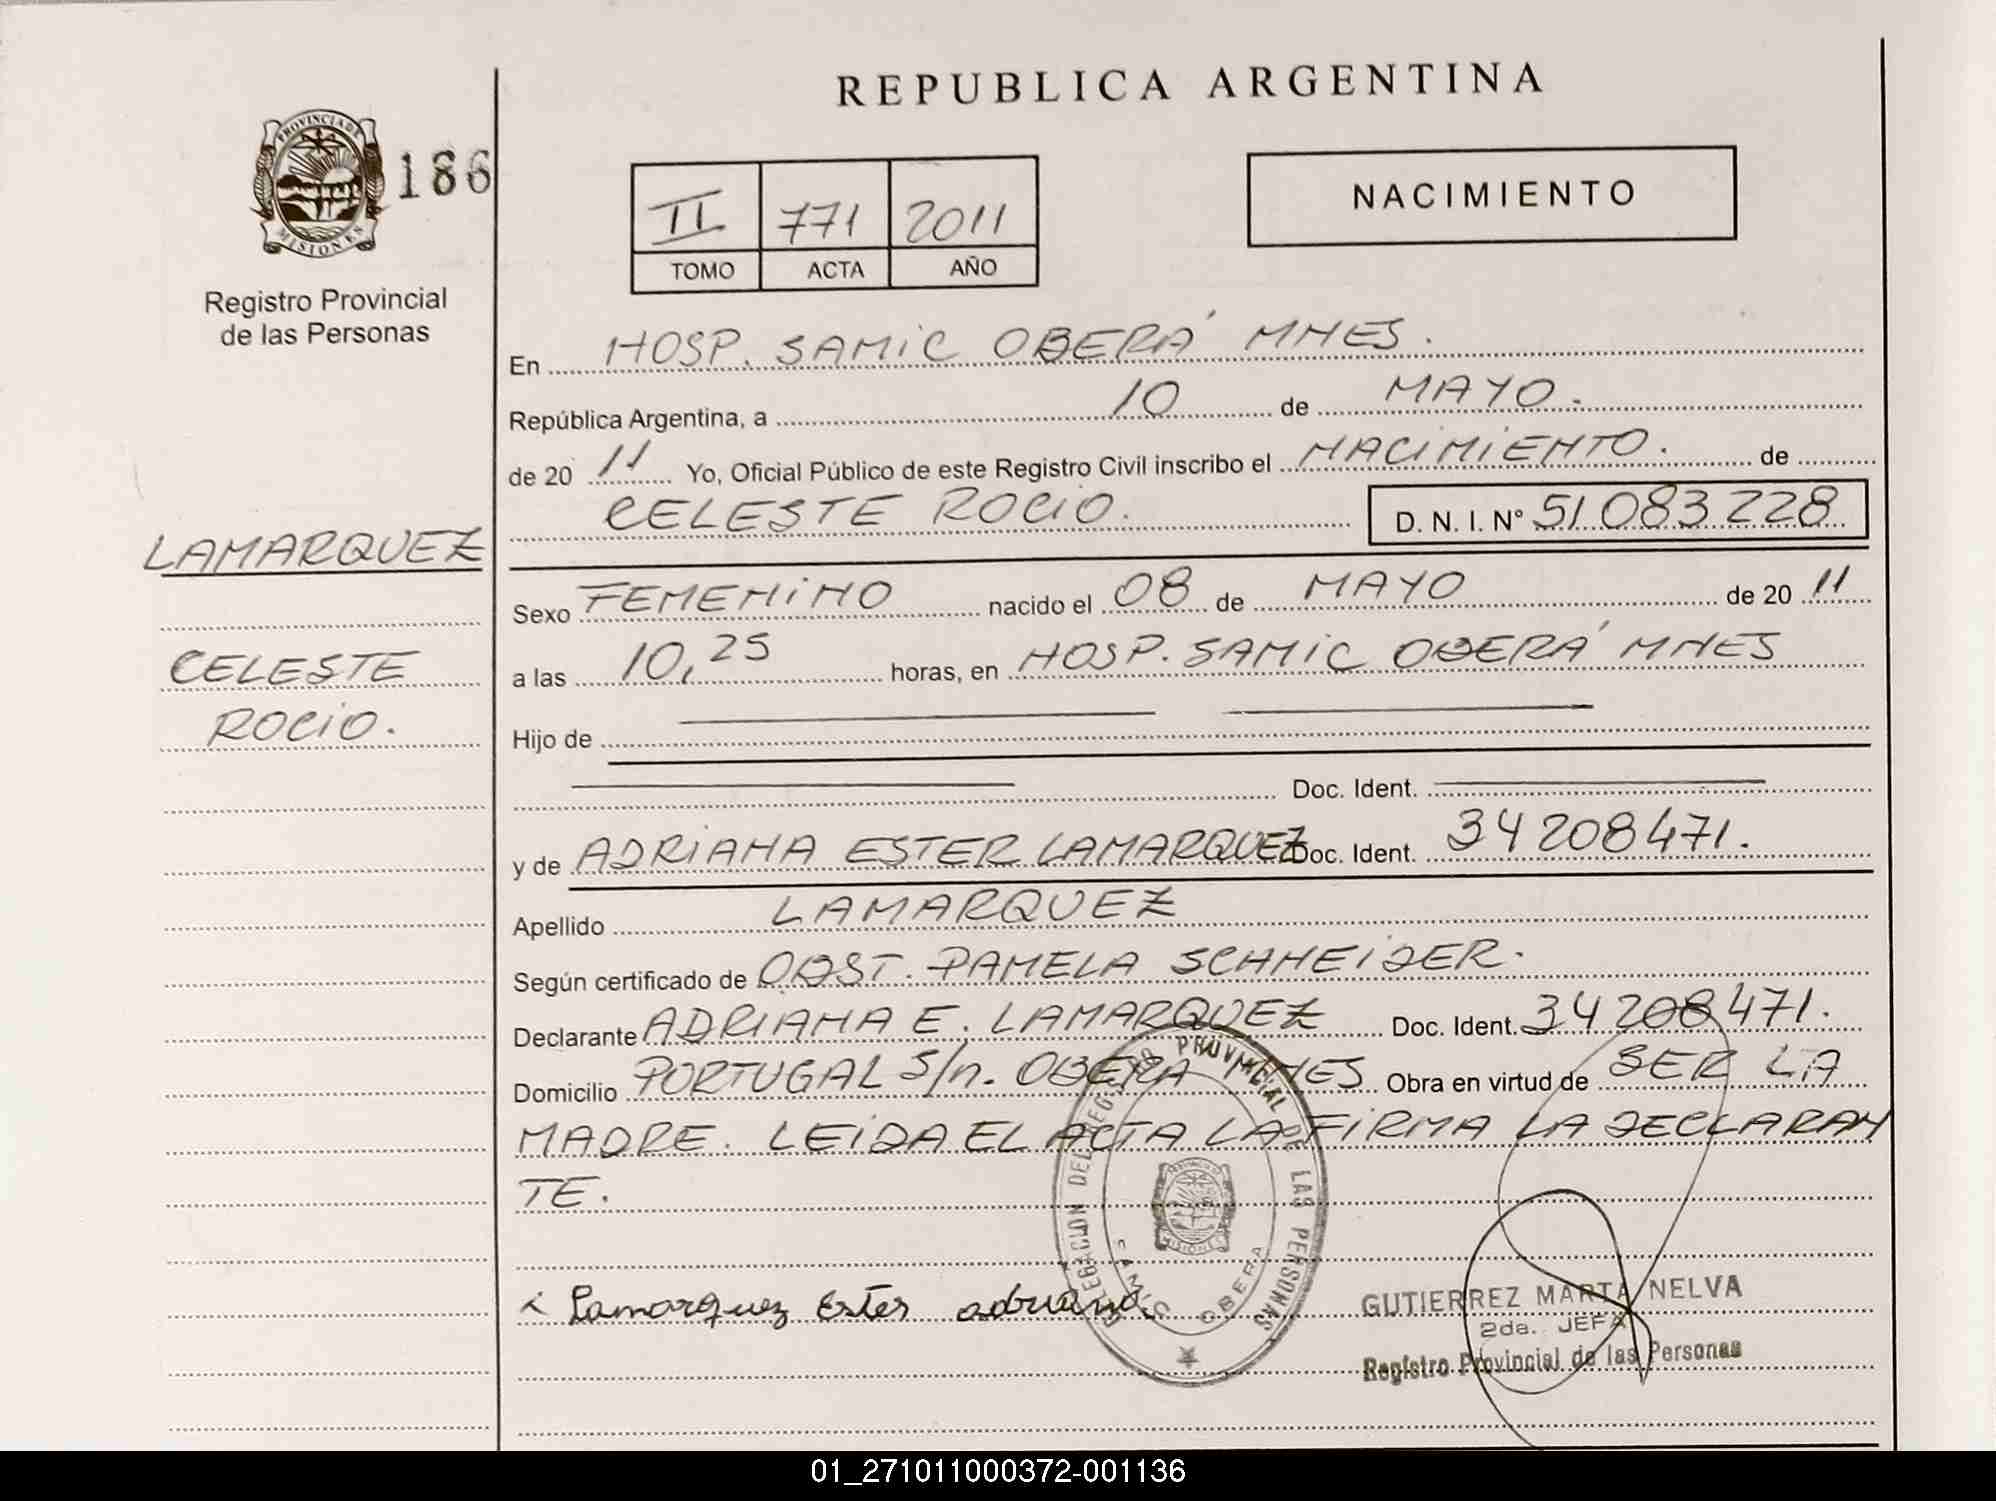 REPUBLICA ARGENTINA
PROVINCIA DE
MISIONES
186
Registro Provincial
de las Personas
II 771 2011
TOMO ACTA AÑO
NACIMIENTO
En HOSP. SAMIC OBERÁ MNES.
República Argentina, a 10 de MAYO.
de 20 11 Yo, Oficial Público de este Registro Civil inscribo el NACIMIENTO. de
CELESTE ROCIO. D. N. I. N° 51.083.228
LAMARQUEZ
CELESTE
ROCIO.
Sexo FEMENINO nacido el 08 de MAYO de 20 11
a las 10,25 horas, en HOSP. SAMIC OBERÁ MNES
Hijo de
Doc. Ident.
y de ADRIANA ESTER LAMARQUEZ Doc. Ident. 34208471.
Apellido LAMARQUEZ
Según certificado de OBST. PAMELA SCHNEIDER.
Declarante ADRIANA E. LAMARQUEZ Doc. Ident. 34208471.
Domicilio PORTUGAL S/n. OBERA MNES Obra en virtud de SER LA
MADRE. LEIDA EL ACTA LA FIRMA LA DECLARAN
TE.
Lamarquez Ester adriana
DELEGACION DEL REGISTRO PROVINCIAL DE LAS PERSONAS
OBERA
MISIONES
GUTIERREZ MARTA NELVA
2da. JEFA
Registro Provincial de las Personas
01_271011000372-001136